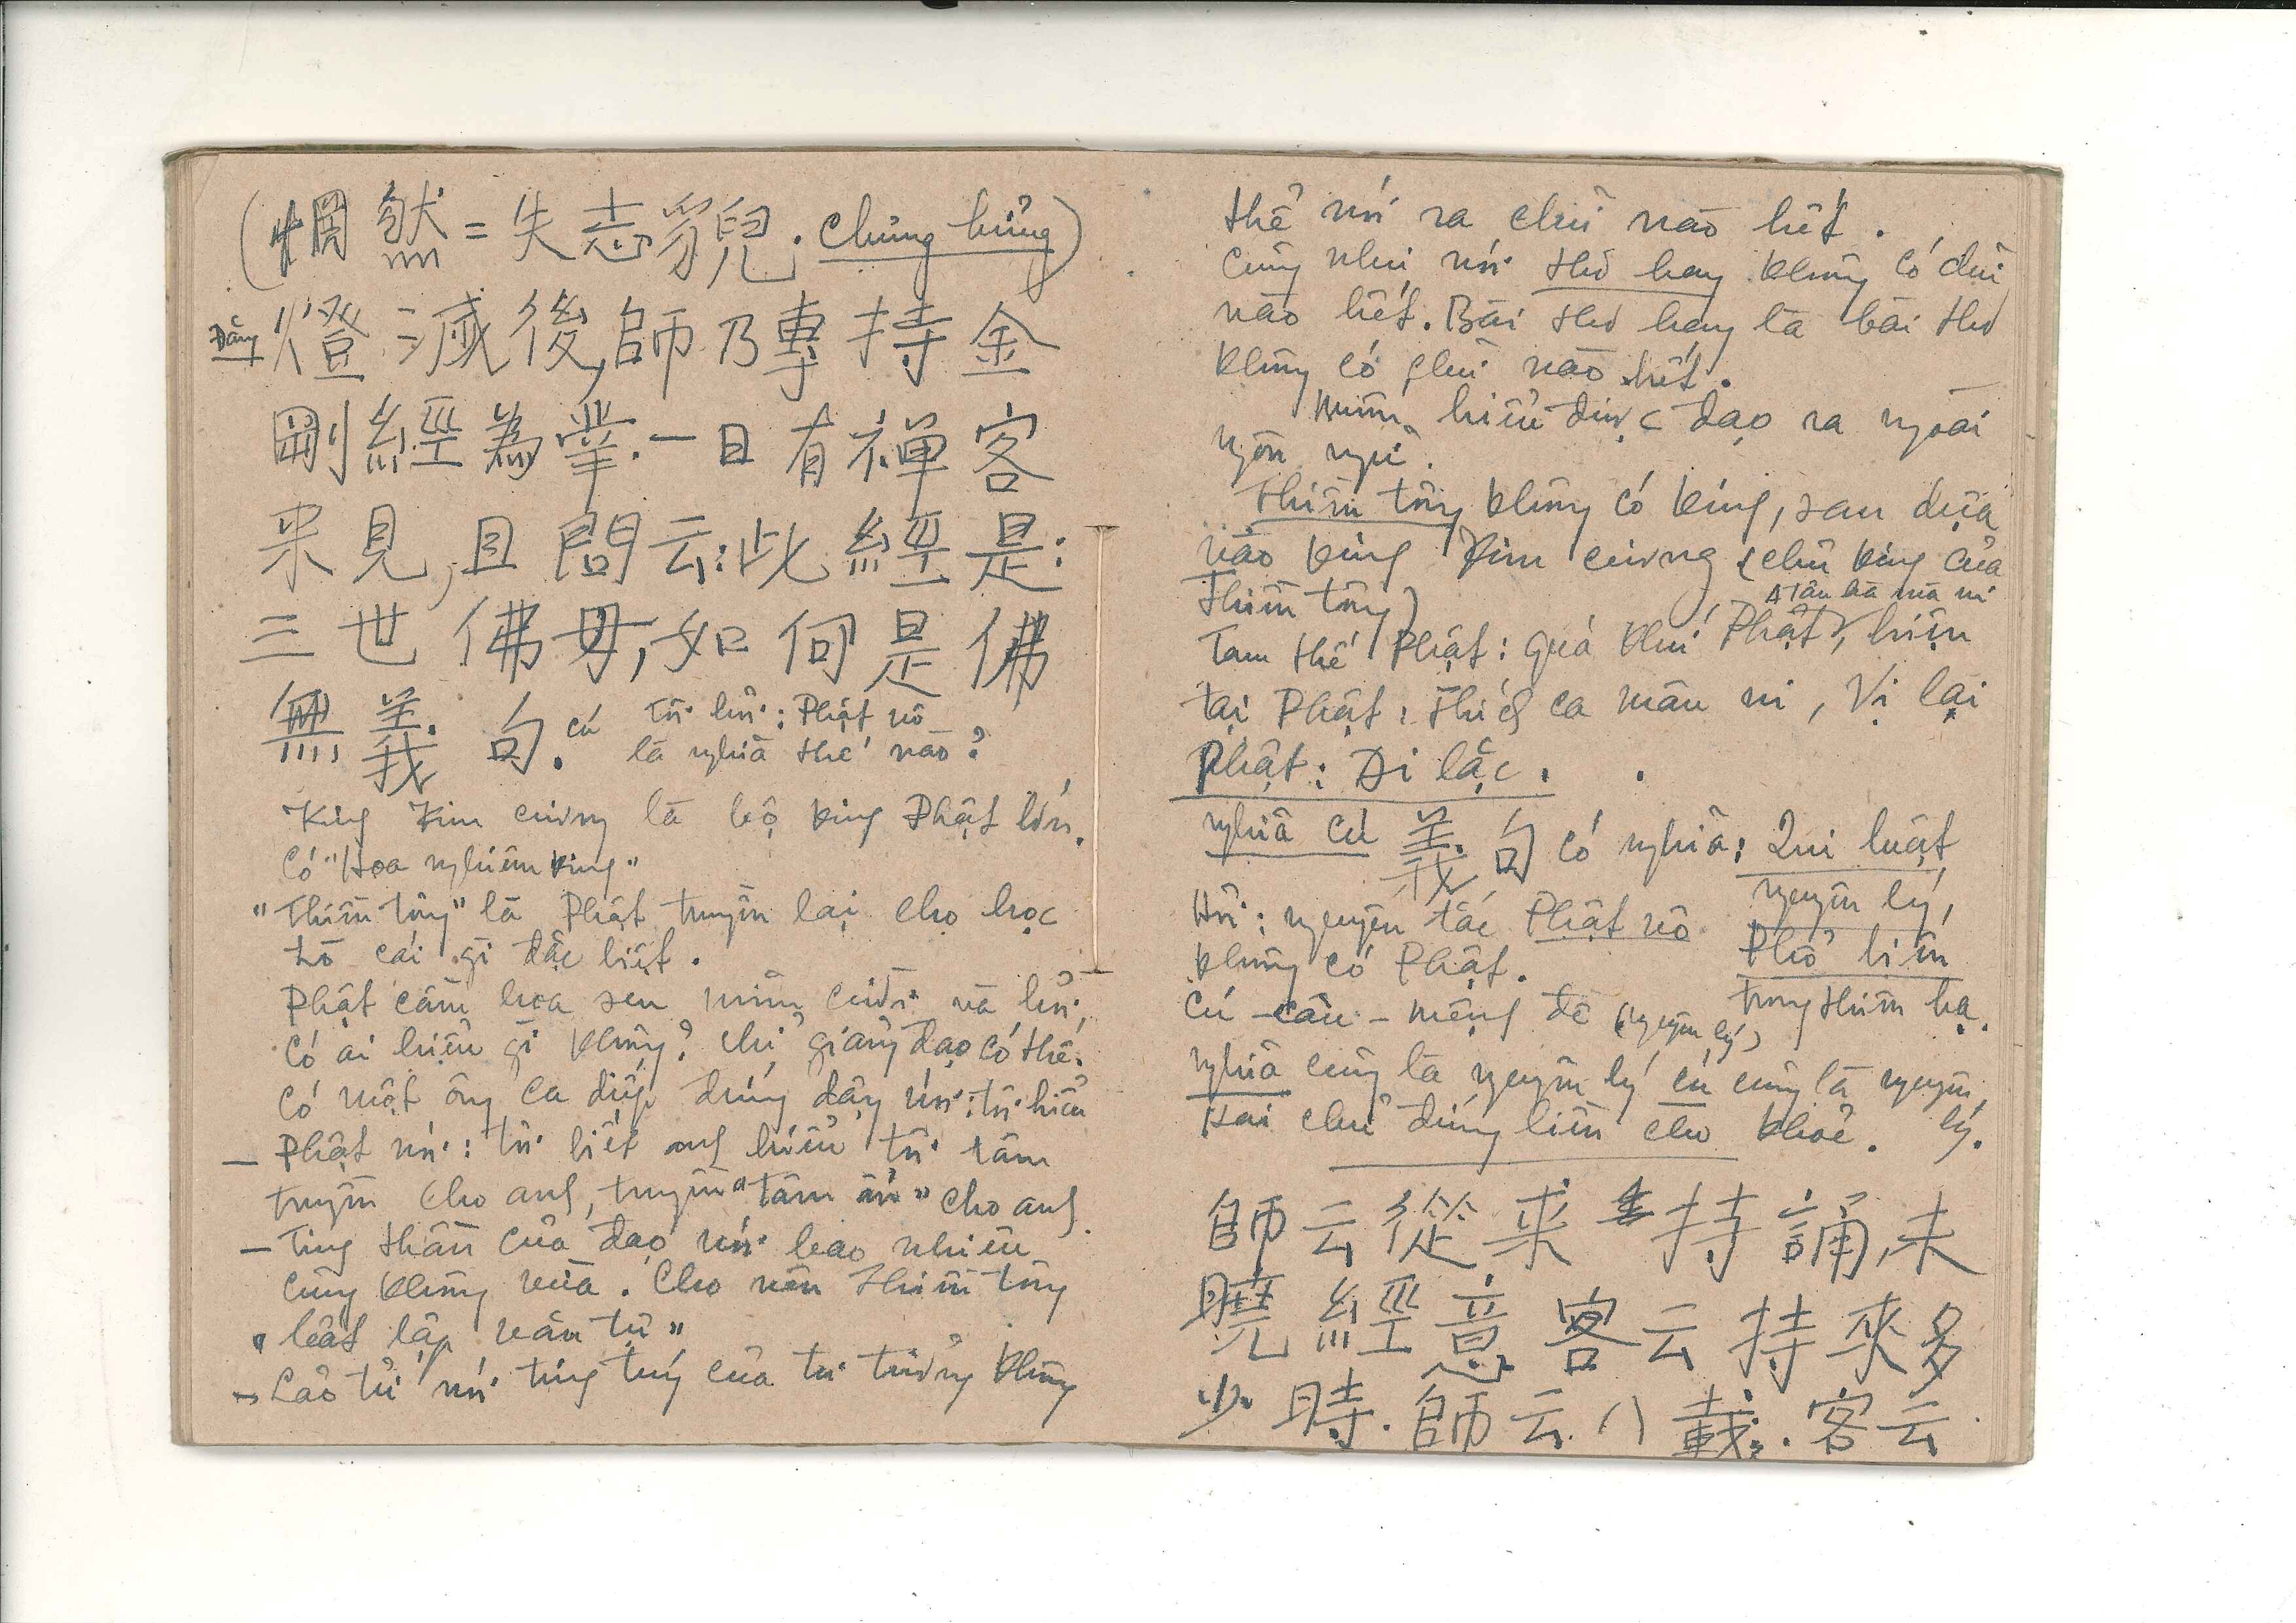 (惘然 = 失志貌兒. chưng hửng)
Đăng 燈滅後,師乃專持金
剛經為業.一日有禪客
来見,且問云:此經是:
三世佛母,如何是佛
無義句. cú Tôi hỏi: Phật vô
là nghĩa thế nào?
Kinh Kim cương là bộ kinh Phật lớn.
Có "Hoa nghiêm kinh"
"Thiền tông" là Phật truyền lại cho học
trò cái gì đặc biệt.
Phật cầm hoa sen mỉm cười và hỏi,
có ai hiểu gì không? chỉ giảng đạo có thế.
Có một ông Ca diếp đứng dậy nói: tôi hiểu
– Phật nói: tôi biết anh hiểu tôi tâm
truyền cho anh, truyền "tâm ấn" cho anh.
– Tinh thần của đạo nói bao nhiêu
cũng không vừa. Cho nên Thiền tông
"bất lập văn tự"
– Lão tử nói tinh túy của tư tưởng không
thể nói ra chữ nào hết.
Cũng như nói thơ hay không có chữ
nào hết. Bài thơ hay là bài thơ
không có chữ nào hết.
Muốn hiểu được đạo ra ngoài
ngôn ngữ.
Thiền tông không có kinh, sau dựa
vào kinh Kim cương (chữ kinh của
Thiền tông)
Tam thế Phật: quá khứ Phật, hiện
tại Phật: Thích ca mâu ni, Vị lại
Phật: Di lặc.
nghĩa cú 義句 có nghĩa: Qui luật
nguyên lý,
Hỏi: nguyên tắc Phật vô Phổ biến
không có Phật. trong thiên hạ.
Cú – câu – mệnh đề (nguyên lý)
nghĩa cũng là nguyên lý cú cũng là nguyên
Hai chữ đứng liền cho khoẻ. lý.
師云從来持誦,未
曉經意客云持來多
少時.師云.八載.客云